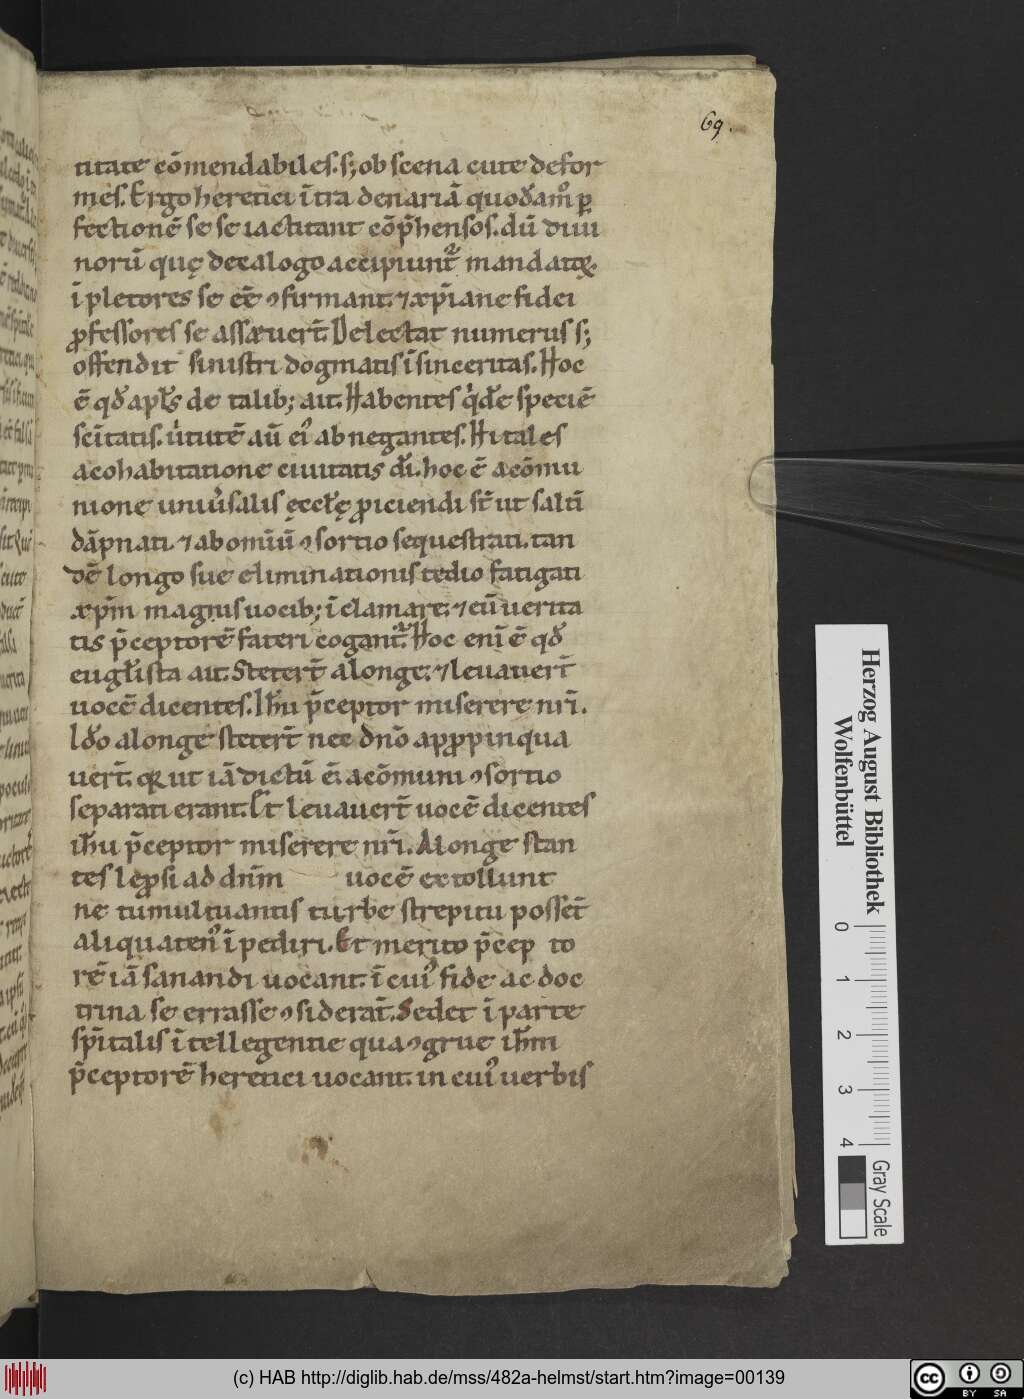 69.
titate cōmendabiles. s; ob scena cute defor
mes. Ergo heretici ītra denariā quoꝺāmº ꝑ
fectionē se se iactitant cōp̄hensos. dū diui
norū quę decalogo accipiunt᷑ mandatoꝝ
īpletores se eē ꝯfirmant. ⁊ xp̄iane fidei
ꝓfessores se assæuert̄. Delectat numerus s;
offendit sinistri dogmatis īsinceritas. Hoc
ē qđ apłs de talib; ait. Habentes qͥdē speciē
scītatis. uͥtutē aū eiꝰ abnegantes. Hi tales
a cohabitatione ciuitatis dī. hoc ē a cōmu
nione uniuͥsalis ęcclę ꝓiciendi st̄ ut saltī
dāpnati ⁊ abomīū ꝯsortio sequestrati. tan
dē longo sue eliminationis tedio fatigati
xp̄m magnis uocib; īclamare. ⁊ cū uerita
tis p̄ceptorē fateri cogant᷑. Hoc enī ē qđ
eugłista ait. Stetert̄ alonge. ⁊ leuauert̄
uocē dicentes. Ihu p̄ceptor miserere nr̄i.
Iđo alonge stetert̄ nec dn̄o apꝓpinqua
uert̄. qꝛ ut iā dictū ē. a cōmuni ꝯsortio
separati erant. Et leuauert̄ uocē dicentes
ihu p̄ceptor miserere nr̄i. Alonge stan
tes leꝓsi ad dnīm uocē extollunt
ne tumultuantis turbe strepitu posset̄
aliquatenꝰ īpediri. Et merito p̄cep to
rē iā sanandi uocant. ī cuiꝰ fide ac doc
trina se errasse ꝯsiderat̄. Sedet ī parte
sp̄italis ītellegentie qua ꝯgrue ihm
p̄ceptorē heretici uocant. in cuiꝰ uerbis
Herzog August Bibliothek
Wolfenbüttel
0 1 2 3 4
Gray Scale
(c) HAB http://diglib.hab.de/mss/482a-helmst/start.htm?image=00139
cc BY SA